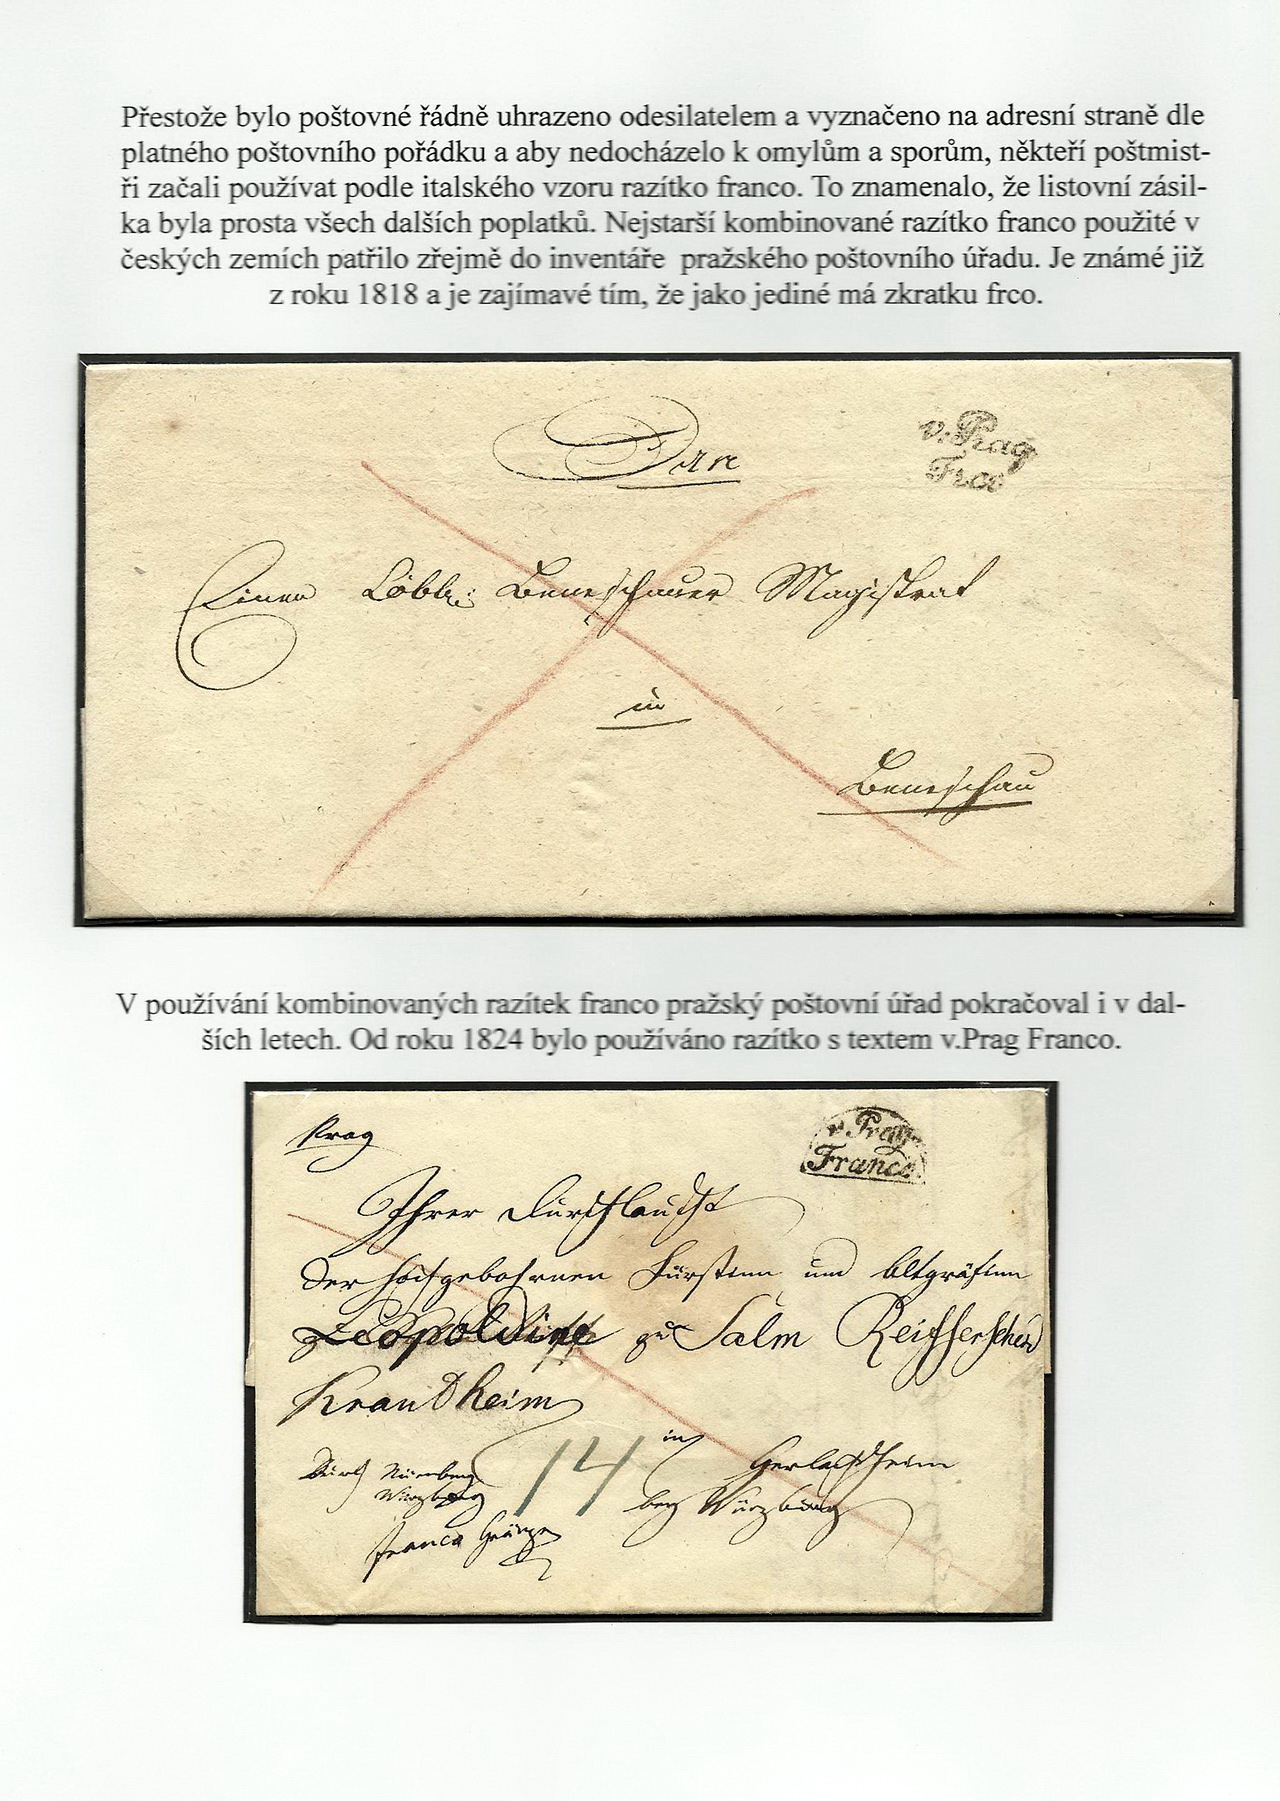 Přestože bylo poštovné řádně uhrazeno odesilatelem a vyznačeno na adresní straně dle
platného poštovního pořádku a aby nedocházelo k omylům a sporům, někteří poštmist-
ři začali používat podle italského vzoru razítko franco. To znamenalo, že listovní zásil-
ka byla prosta všech dalších poplatků. Nejstarší kombinované razítko franco použité v
českých zemích patřilo zřejmě do inventáře pražského poštovního úřadu. Je známé již
z roku 1818 a je zajímavé tím, že jako jediné má zkratku frco.
v. Prag
Frco
Einen Löbl: Beneschauer Magistrat
in
Beneschau
V používání kombinovaných razítek franco pražský poštovní úřad pokračoval i v dal-
ších letech. Od roku 1824 bylo používáno razítko s textem v.Prag Franco.
v. Prag
Franco.
Prag
Ihrer Durchlaucht
der hochgebohrnen Fürstinn und Altgräfinn
Leopoldine zu Salm Reifferscheid
Krautheim
in Gerlachsheim
bey Würzburg
14
Durch Nürnberg
Würzburg
franco Gränze